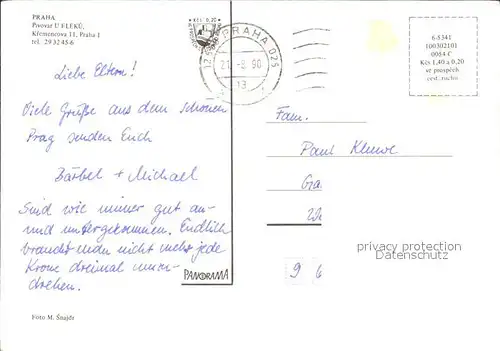 PRAHA
Pivovar U FLEKŮ,
Křemencova 11, Praha 1
tel. 29 32 45-6
Liebe Eltern!
Viele Grüße aus dem schönen
Prag senden Euch
Bärbel + Michael
Sind wie immer gut an-
und untergekommen. Endlich
braucht man nicht mehr jede
Krone dreimal umzu-
drehen.
Foto M. Šnajdr
PANORAMA
Kčs 0,20
PRAHA 025
-8.90
13
6-8341
100302101
0064 C
Kčs 1,40 a 0,20
ve prospěch
Fam.
Paul Kluwe
Ga
privacy protection
Datenschutz
9 6